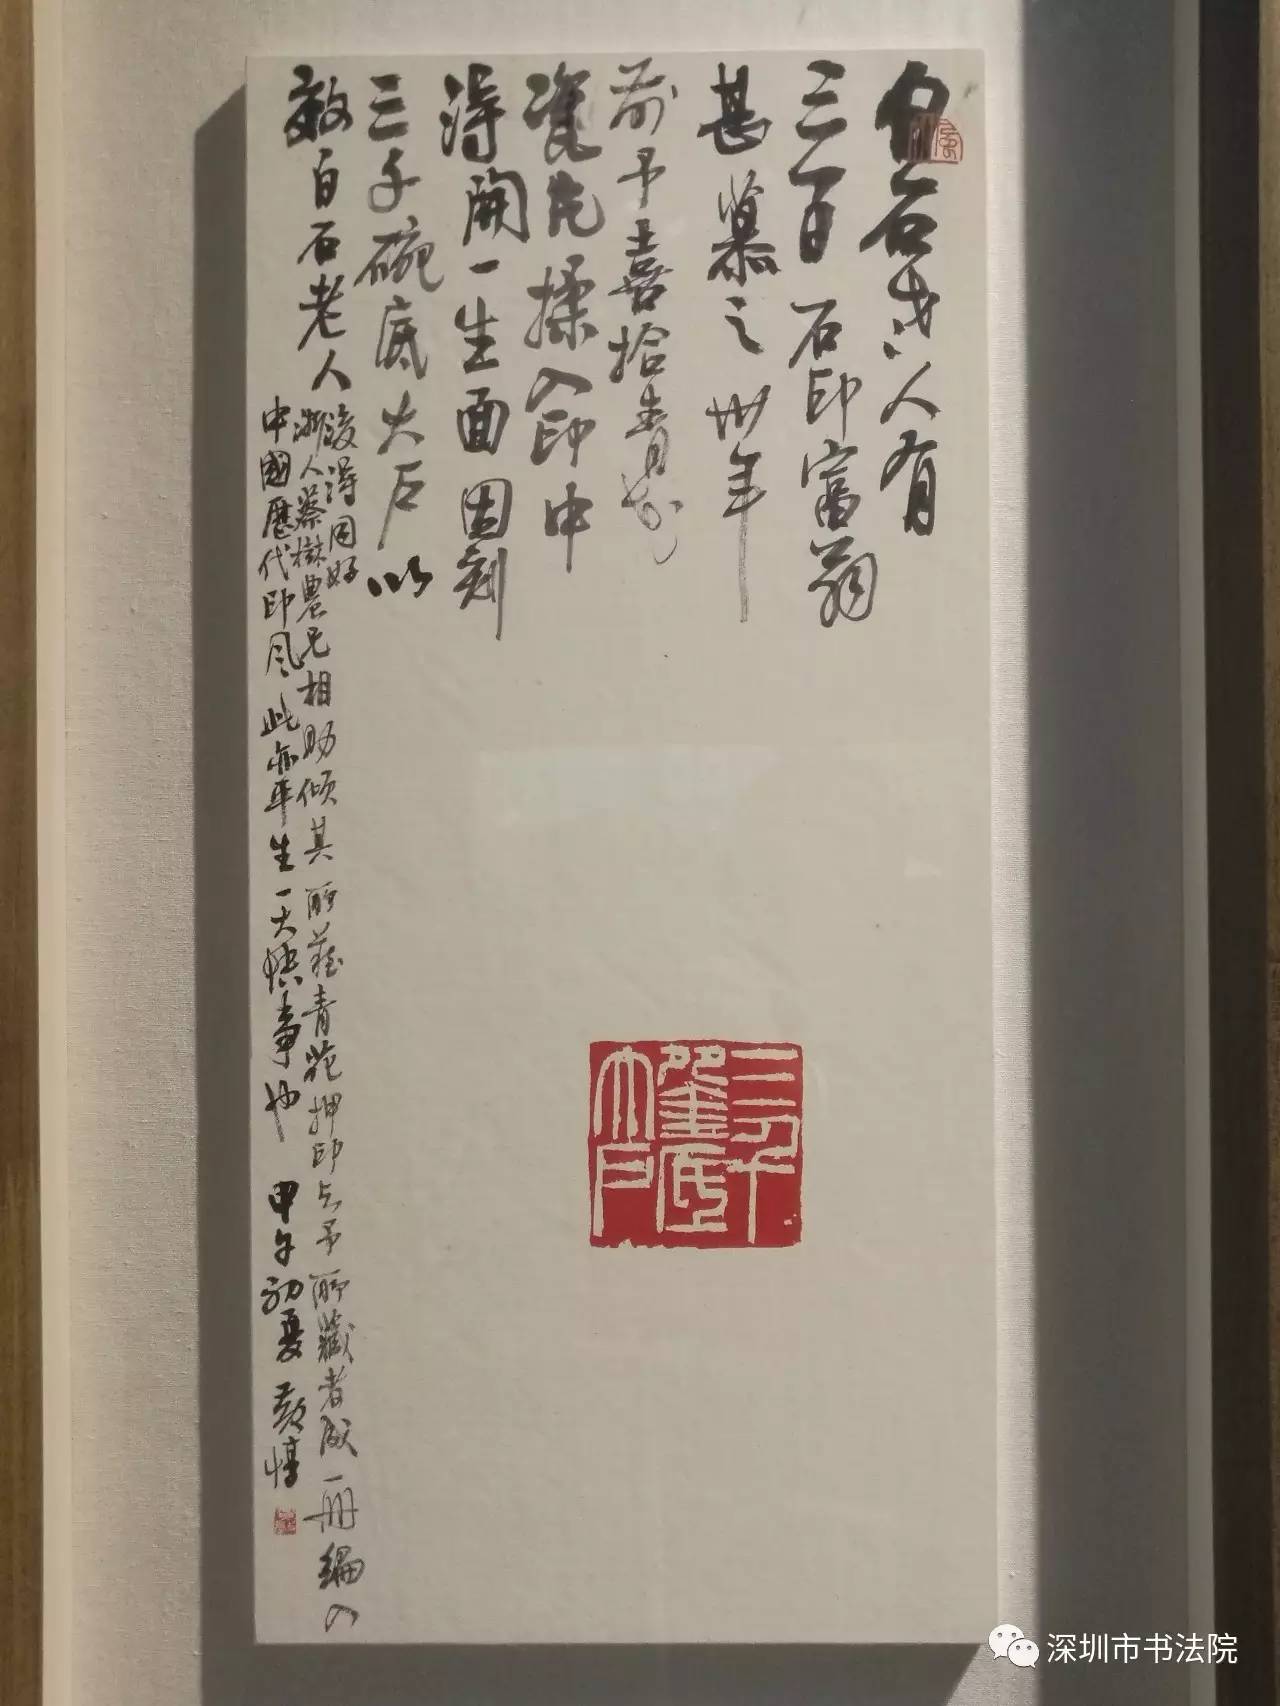 白石老人有
三百石印富翁
甚慕之卅年
前予喜拾青花
瓷片揉入印中
得开一生面因刻
三千碗底大户以
效白石老人
后得同好
浙人蔡树農兄相助倾其所藏青花押印与予所藏者成一册编入
中國歷代印风此亦平生一大快事也 甲午初夏 黄惇
三千
底
大户
深圳市书法院